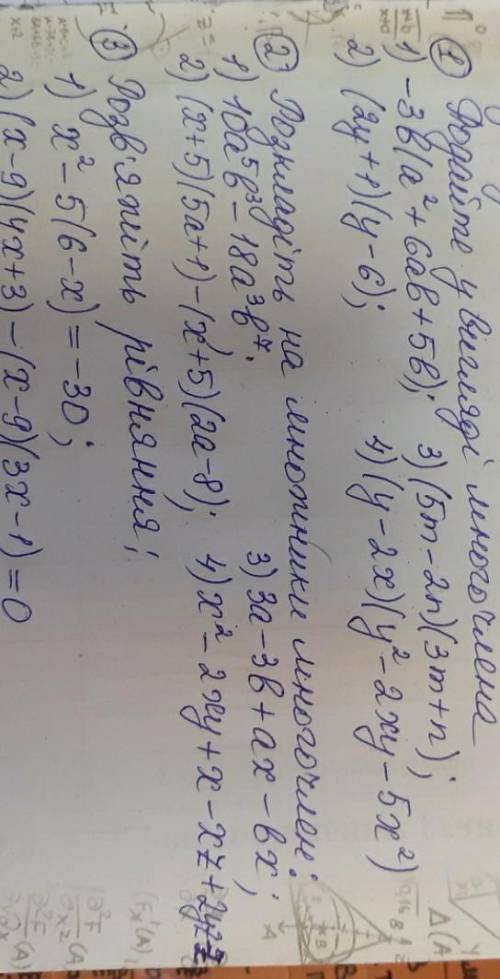 ① Подайте у вигляді многочлена
1) -3b(a² + 6ab + 5b); 3) (5m - 2n)(3m + n);
2) (2y + 1)(y - 6); 4) (y - 2x)(y² - 2xy - 5x²)
② Розкладіть на множники многочлен:
1) 10a⁵b³ - 18a³b⁷; 3) 3a - 3b + ax - bx;
2) (x+5)(5a+1) - (x+5)(2a-8); 4) x² - 2xy + x - xz + 2yz - z
③ Розв'яжіть рівняння:
1) x² - 5(6 - x) = -30;
2) (x - 9)(4x + 3) - (x - 9)(3x - 1) = 0